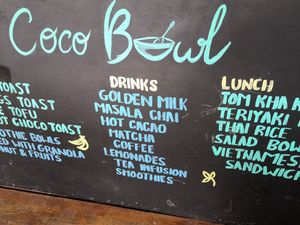 Coco Bowl
TOAST
GS TOAST
TOFU
T CHOCO TOAST
OTHIE BOWLS
ED WITH GRANOLA
NUT & FRUITS
DRINKS
GOLDEN MILK
MASALA CHAI
HOT CACAO
MATCHA
COFFEE
LEMONADES
TEA INFUSION
SMOOTHIES
LUNCH
TOM KHA K
TERIYAKI
THAI RICE
SALAD BOWL
VIETNAMES
SANDWICH